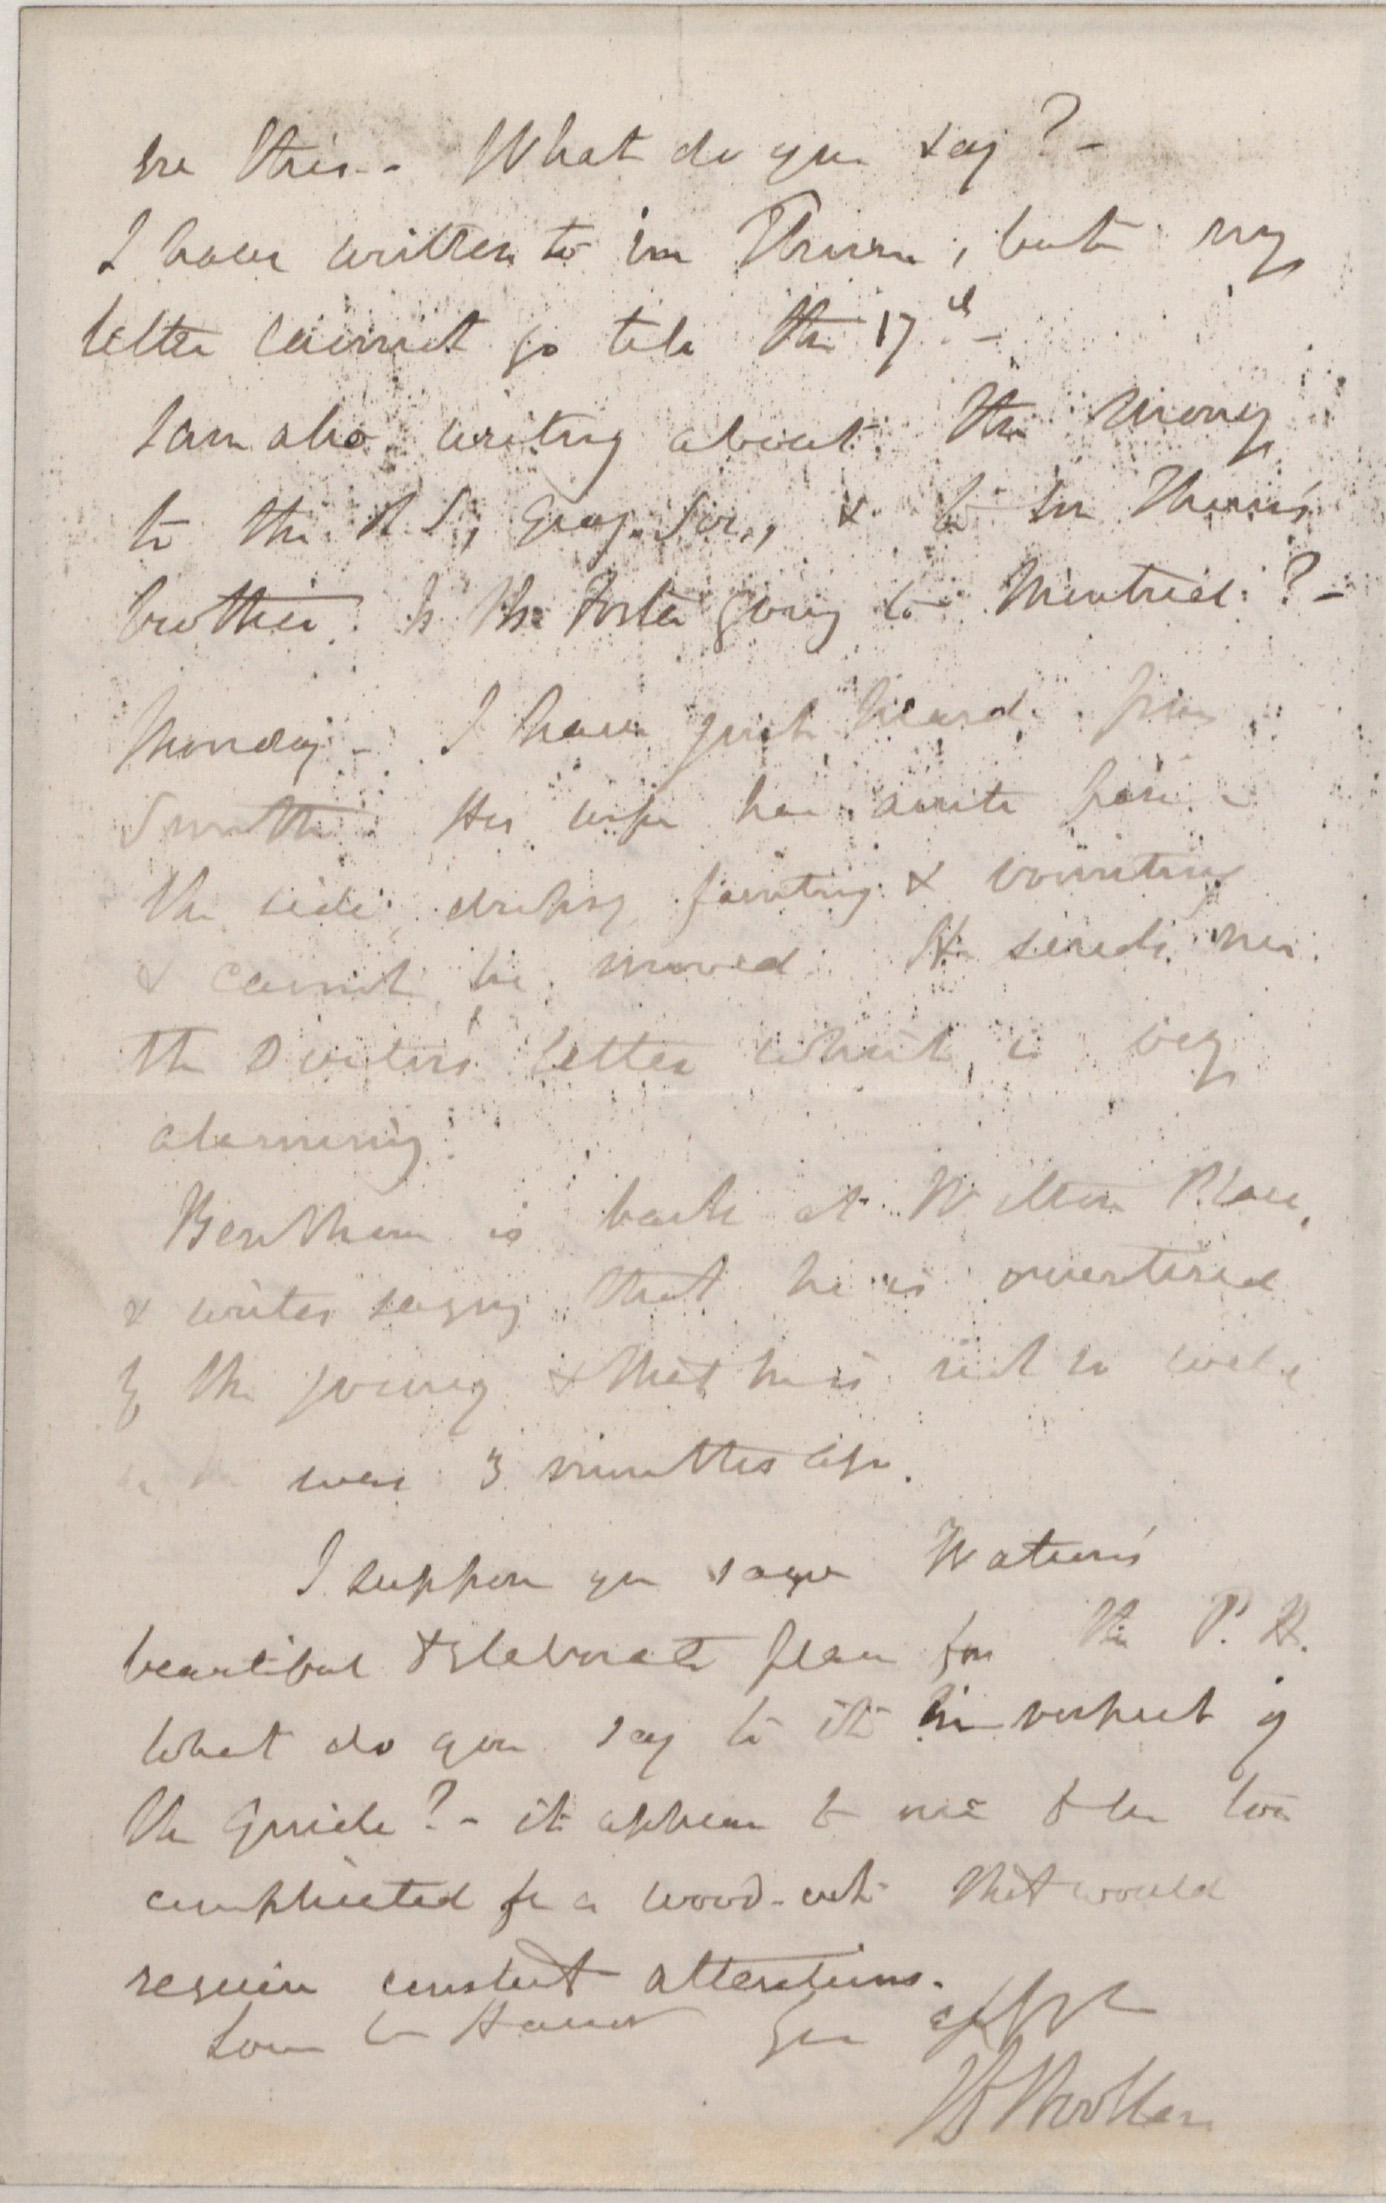 see this — What do you say? —
I have written to im Thurn, but my
letter cannot go till the 17th —
I am also writing about the money
to the R S, Geog. Soc., & to im Thurn's
brother. Is Foster going to Montreal? —
Monday — I have just heard from
Smith His wife has acute pain in
the side, dropsy fainting & vomiting
& cannot be moved. He sends me
the Doctors' letter which is very
alarming.
Bentham is back at Wilton Place,
& writes saying that he is overtired
by the journey & that he is not so well
as he was 3 months ago.
I suppose you saw Watson's
beautiful & elaborate plan for the P. H.
What do you say to it in respect of
the Guide? — it appears to me to be too
complicated for a wood-cut that would
require constant alterations.
Love to Harriet Yr aff
JD Hooker